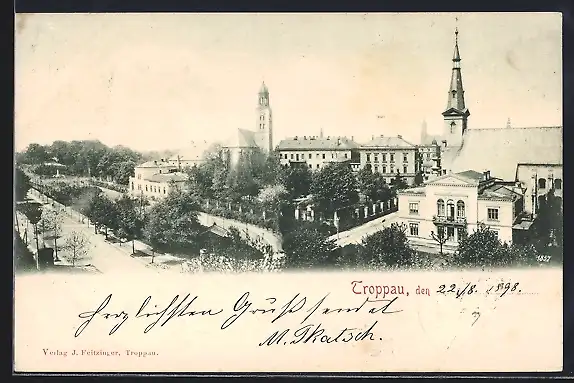 1857
Troppau, den 22./8. 1898.
Herzlichsten Gruß sendet
M.
Verlag J. Feitzinger, Troppau.